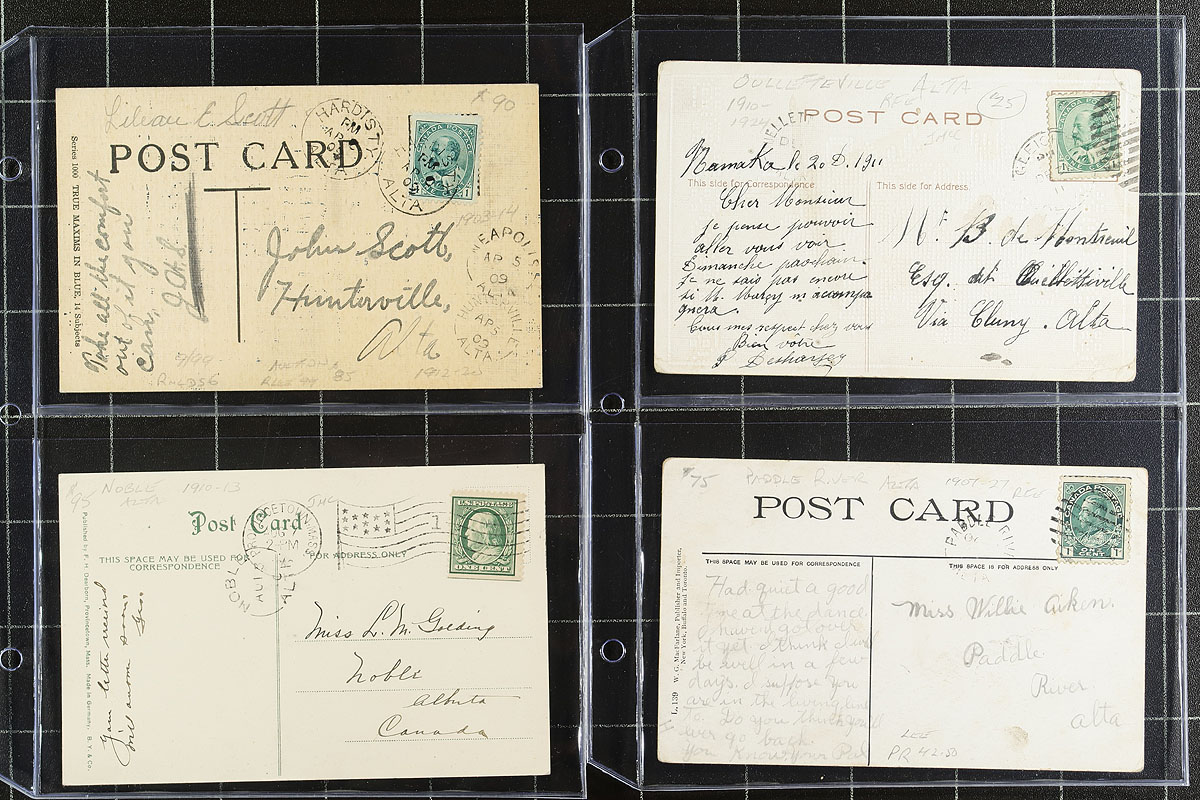 Lilian E. Scott
$90
HARDISTY
PM
AP
09
ALTA
POST CARD
CANADA POSTAGE
Series 1000 TRUE MAXIMS IN BLUE. 14 Subjects
Take all the comfort
out of it you
can.
1903-14
AP 5
09
ALTA
AP 5
09
ALTA
John Scott,
Hunterville,
Alta
85
1912-25
OULLETTEVILLE ALTA
1910-
1924
REE
25
POST CARD
Namaka le 20 D. 1911
This side for Correspondence
This side for Address.
Cher Monsieur
je pense pouvoir
aller vous voir
Dimanche prochain.
Je ne sais pas encore
si M.
gnera.
Tous mes respect chez vous
Bien votre
Mr. B. de Montreuil
Esq. at
Via Cluny. Alta
$95
NOBLE
ALTA
1910-13
JHC
Post Card
PROVINCETOWN, MASS.
NOBLE
AU 15
ALTA
THIS SPACE MAY BE USED FOR
CORRESPONDENCE
FOR ADDRESS ONLY
Published by F. H. Dearborn, Provincetown, Mass. Made in Germany. B. Y. & Co.
Your letter received
will answer soon,
Miss L. M. Golding
Noble
Alberta
Canada
$75
PADDLE RIVER ALTA
REE
POST CARD
CANADA POSTAGE
PADDLE RIVER
THIS SPACE MAY BE USED FOR CORRESPONDENCE
THIS SPACE IS FOR ADDRESS ONLY
L. 139 W. G. MacFarlane, Publisher and Importer,
New York, Buffalo and Toronto.
Had quiet a good
time at the dance
I haven't got over
it yet I think I will
be well in a few
days. I suppose you
are in the
to. Do you think you'll
ever go back.
you know. Your Pal
Miss Willie Aiken.
Paddle
River.
alta
LEE
PR 42.50